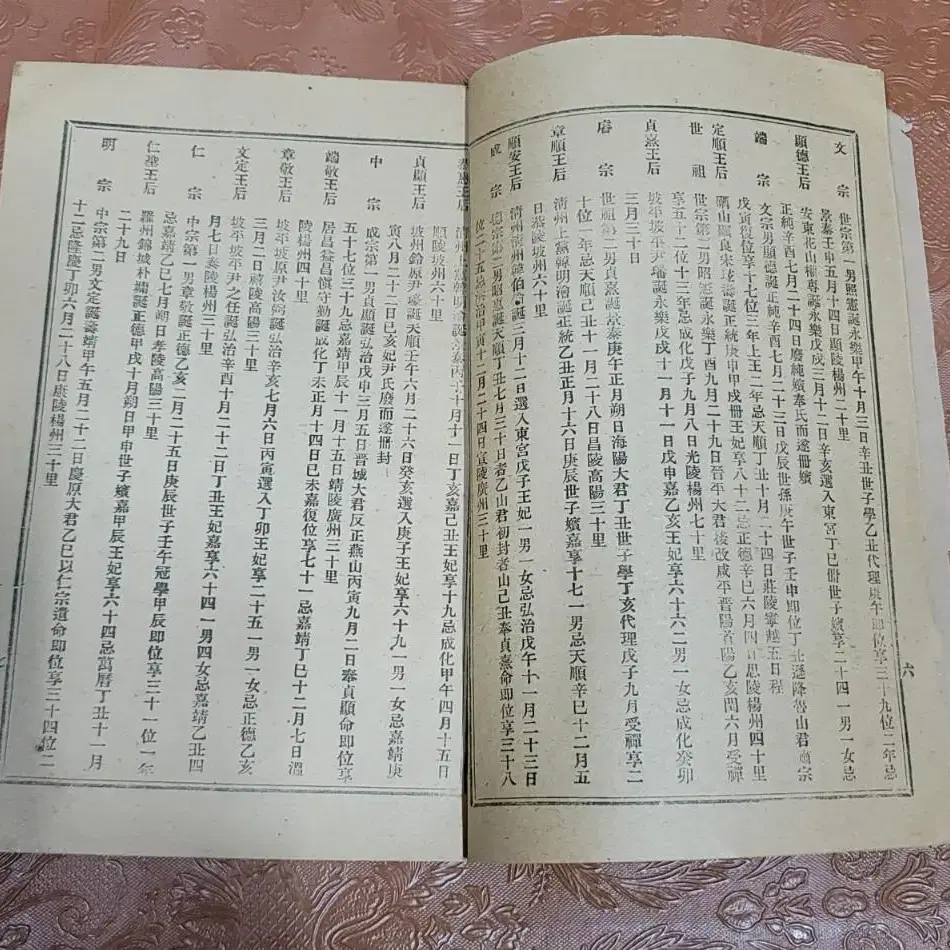 文宗 世宗第一男昭憲誕永樂甲午十月三日辛丑世子學乙丑代理庚午即位享三十九位二年忌
景泰壬申五月十四日顯陵楊州二十里
顯德王后 安東花山權專誕永樂戊戌三月十二日辛亥選入東宮丁巳冊世子嬪享二十四一男一女忌
正純辛酉七月二十四日廢純嬪奉氏而遂冊嬪
端宗 文宗男顯德誕正純辛酉七月二十三日戊辰世孫庚午世子壬申即位丁丑遜降魯山君肅宗
戊寅復位享十七位三年上王二年忌天順丁丑十月二十四日莊陵寧越五日程
定順王后 礪山礪良宋玹壽誕正統庚申甲戌冊王妃享八十二忌正德辛巳六月四日思陵楊州四十里
世祖 世宗第二男昭憲誕永樂丁酉九月二十九日晉平大君後改咸平晉陽首陽乙亥閏六月受禪
享五十二位十三年忌成化戊子九月八日光陵楊州七十里
貞熹王后 坡平坡平尹璠誕永樂戊戌十一月十一日戊申嘉乙亥王妃享六十六二男一女忌成化癸卯
三月三十日
睿宗 世祖第二男貞熹誕景泰庚午正月朔日海陽大君丁丑世子學丁亥代理戊子九月受禪享二
十位一年忌天順己丑十一月二十八日昌陵高陽三十里
章順王后 淸州上黨韓明澮誕正統乙丑正月十六日庚辰世子嬪嘉享十七一男忌天順辛巳十二月五
日恭陵坡州六十里
順安王后 淸州淸州韓伯倫誕三月十二日選入東宮戊子王妃一男一女忌弘治戊午十二月二十三日
成宗 德宗第二男昭惠誕天順丁丑七月三十日者乙山君初封者山己丑奉貞熹命即位享三十八
位二十五忌弘治甲寅十二月二十四日宣陵廣州三十里
恭惠王后 淸州上黨韓明澮誕景泰丙子十月十一日丁亥嘉己丑王妃享十九忌成化甲午四月十五日
順陵坡州六十里
貞顯王后 坡州鈴原尹壕誕天順壬午六月二十六日癸亥選入庚子王妃享六十九一男一女忌嘉靖庚
寅八月二十二日己亥妃尹氏廢而遂冊封
中宗 成宗第一男貞顯誕弘治戊申三月五日晋城大君反正燕山丙寅九月二日奉貞顯命即位享
五十七位三十九忌嘉靖甲辰十一月十五日靖陵廣州三十里
端敬王后 居昌益昌愼守勤誕成化丁未正月十四日己未嘉復位享七十一忌嘉靖丁巳十二月七日溫
陵楊州四十里
章敬王后 坡平坡原尹汝弼誕弘治辛亥七月六日丙寅選入丁卯王妃享二十五一男一女忌正德乙亥
三月二日禧陵高陽三十里
文定王后 坡平坡平尹之任誕弘治辛酉十月二十二日丁丑王妃嘉享六十四一男四女忌嘉靖乙丑四
月七日泰陵楊州三十里
仁宗 中宗第一男章敬誕正德乙亥二月二十五日庚辰世子壬午冠學甲辰即位享三十一位一年
忌嘉靖乙巳七月朔日孝陵高陽三十里
仁聖王后 羅州錦城朴墉誕正德甲戌十月朔日甲申世子嬪嘉甲辰王妃享六十四忌萬曆丁丑十一月
二十九日
明宗 中宗第二男文定誕嘉靖甲午五月二十二日慶原大君乙巳以仁宗遺命即位享三十四位二
十二忌隆慶丁卯六月二十八日康陵楊州三十里
六